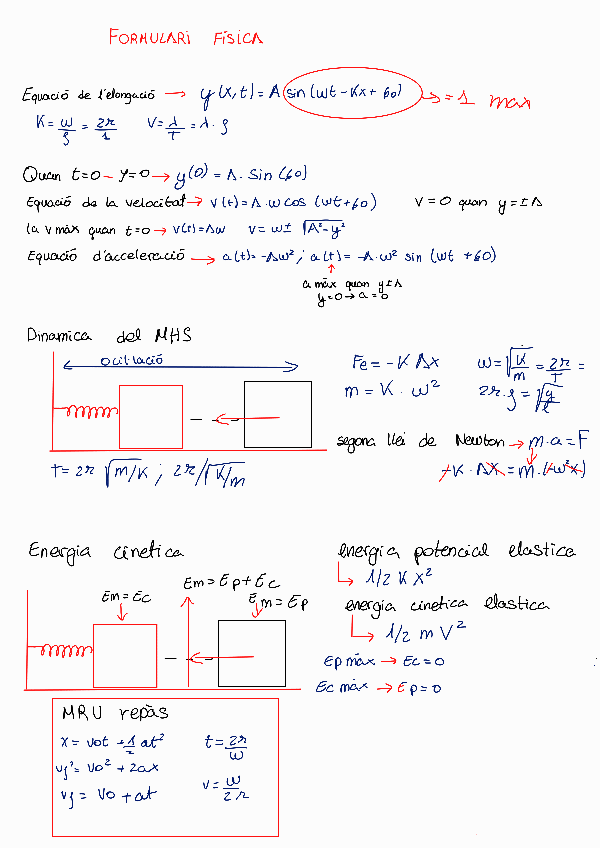 FORMULARI FÍSICA
Equació de l'elongació → y(x,t) = A sin(ωt - Kx + ϕo) → = 1 max
K = ω/f = 2π/λ V = λ/T = λ · f
Quan t=0 - y=0 → y(0) = A · sin(ϕo)
Equació de la velocitat → v(t) = A · ω cos (ωt + ϕo) V = 0 quan y = ± A
la v màx quan t=0 → v(t) = Aω v = ω ± √A² - y²
Equació d'acceleració → a(t) = -Aω² ; a(t) = -A · ω² sin (ωt + ϕo)
a màx quan y ± A
y=0 → a = 0
Dinamica del MHS
ocil·lació
Fe = -K Δx
ω = √K/m = 2π/T =
m = K · ω²
2π · f = √g/l
segona llei de Newton → m · a = F
-K · Δx = m · (-ω² x)
T = 2π √m/K ; 2π/√K/m
Energia cinetica
Em = Ec
Em = Ep + Ec
Em = Ep
energia potencial elastica
1/2 K x²
energia cinetica elastica
1/2 m V²
Ep màx → Ec = 0
Ec màx → Ep = 0
MRU repàs
x = vot + 1/2 at² t = 2π/ω
vf² = vo² + 2ax
vf = vo + at v = ω/2π